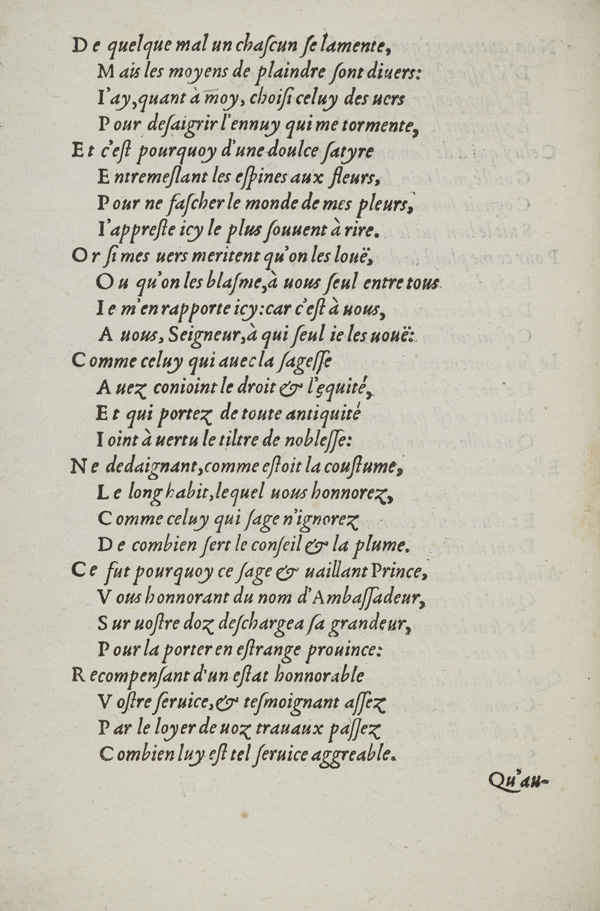 De quelque mal un chaſcun ſe lamente,
Mais les moyens de plaindre ſont diuers:
I'ay, quant à moy, choiſi celuy des uers
Pour deſaigrir l'ennuy qui me tormente,
Et c'eſt pourquoy d'une doulce ſatyre
Entremeſlant les eſpines aux fleurs,
Pour ne faſcher le monde de mes pleurs,
I'appreſte icy le plus ſouuent à rire.
Or ſi mes uers meritent qu'on les louë,
Ou qu'on les blaſme, à uous ſeul entre tous
Ie m'en rapporte icy: car c'eſt à uous,
A uous, Seigneur, à qui ſeul ie les uouë:
Comme celuy qui auec la ſageſſe
Auez conioint le droit & l'ęquité,
Et qui portez de toute antiquité
Ioint à uertu le tiltre de nobleſſe:
Ne dedaignant, comme eſtoit la couſtume,
Le long habit, lequel uous honnorez,
Comme celuy qui ſage n'ignorez
De combien ſert le conſeil & la plume.
Ce fut pourquoy ce ſage & uaillant Prince,
Vous honnorant du nom d'Ambaſſadeur,
Sur uoſtre doz deſchargea ſa grandeur,
Pour la porter en eſtrange prouince:
Recompenſant d'un eſtat honnorable
Voſtre ſeruice, & teſmoignant aſſez
Par le loyer de uoz trauaux paſſez
Combien luy eſt tel ſeruice aggreable.
Qu'au-